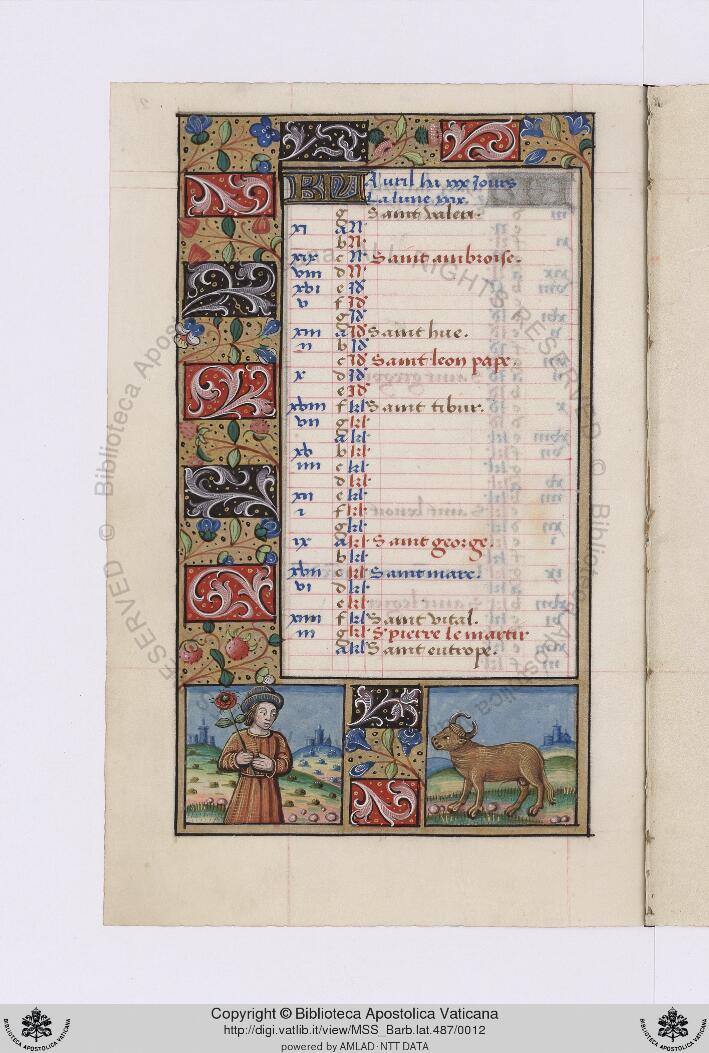 KL Auril ha xxx Jours
La lune xxix.
g Saint valeri.
xi a N
b N
xix c N Saint ambroise.
viii d N
xvi e Id
v f Id
g Id
xiii a Id Saint hue.
ii b Id
c Id Saint leon pape.
x d Id
e Id
xviii f kl Saint tibur.
vii g kl
a kl
xv b kl
iiii c kl
d kl
xii e kl
i f kl
g kl
ix a kl Saint george.
b kl
xvii c kl Saint marc.
vi d kl
e kl
xiiii f kl Saint vital.
iii g kl S. pierre le martir
a kl Saint eutrope.
Copyright © Biblioteca Apostolica Vaticana
http://digi.vatlib.it/view/MSS_Barb.lat.487/0012
powered by AMLAD · NTT DATA
BIBLIOTECA APOSTOLICA VATICANA
BIBLIOTECA APOSTOLICA VATICANA